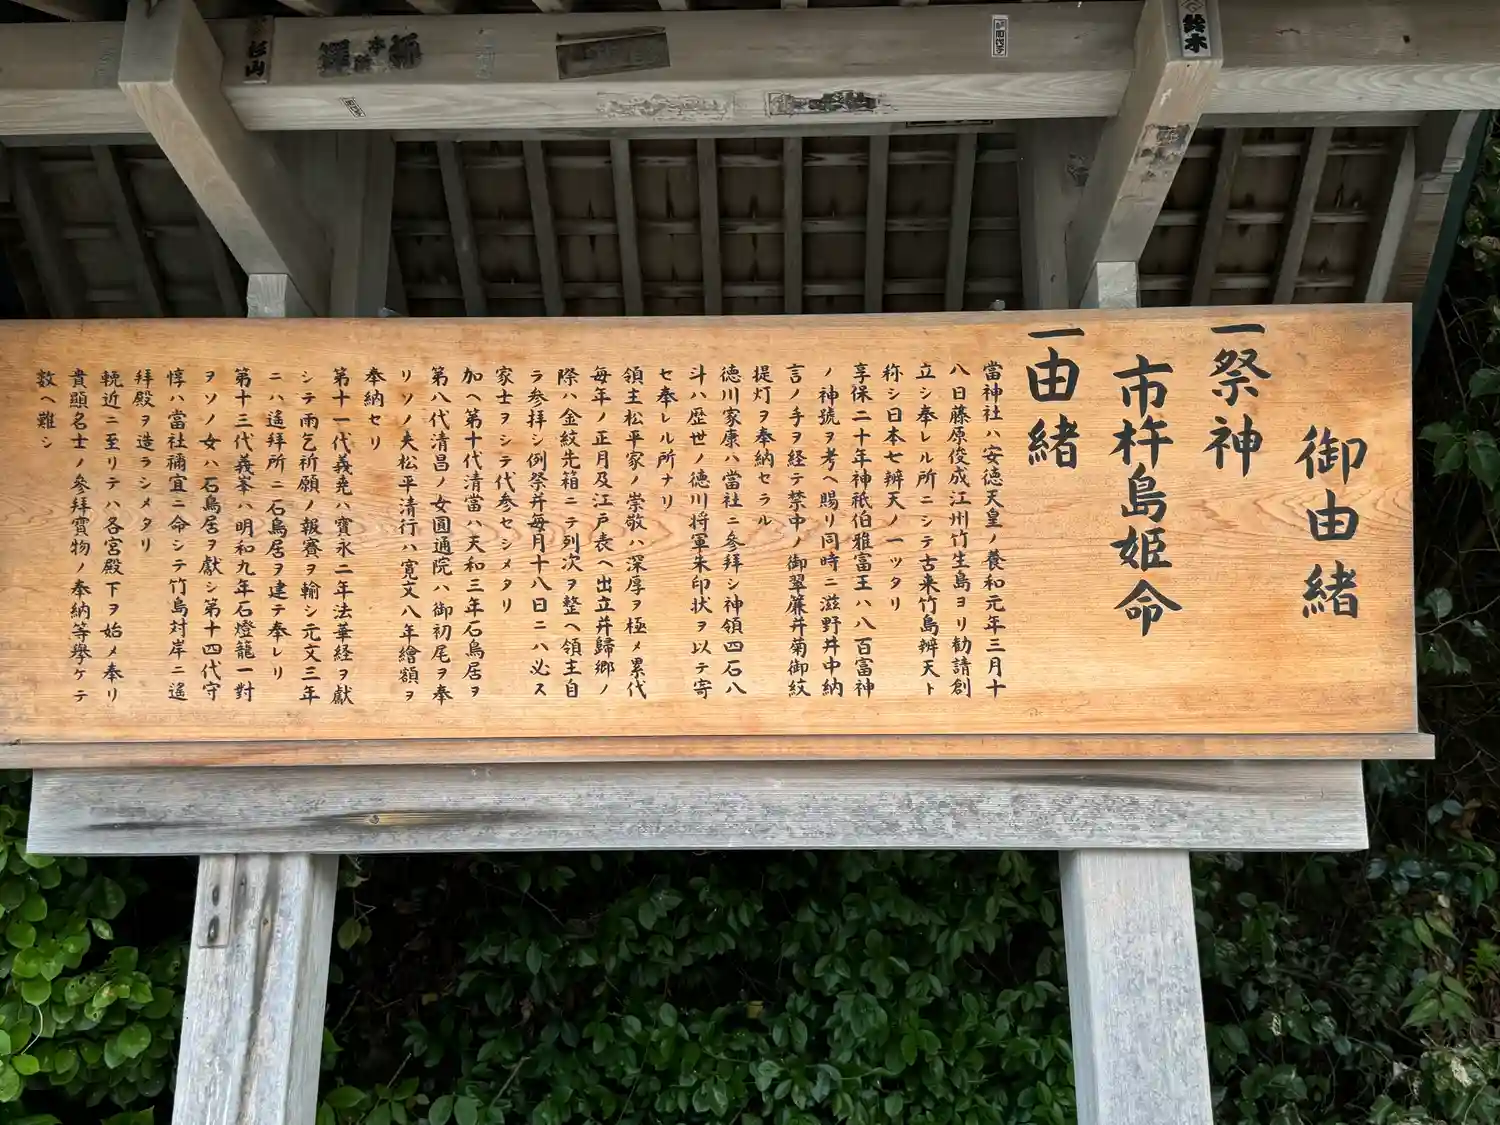 御由緒
一祭神
市杵島姫命
一由緒
當神社ハ安徳天皇ノ養和元年三月十
八日藤原俊成江州竹生島ヨリ勧請創
立シ奉レル所ニシテ古来竹島辨天ト
称シ日本七辨天ノ一ツタリ
享保二十年神祇伯雅富王ハ八百富神
ノ神號ヲ考ヘ賜リ同時ニ滋野井中納
言ノ手ヲ経テ禁中ノ御翠簾并菊御紋
提灯ヲ奉納セラル
徳川家康ハ當社ニ參拜シ神領四石八
斗ハ歴世ノ徳川将軍朱印状ヲ以テ寄
セ奉レル所ナリ
領主松平家ノ崇敬ハ深厚ヲ極メ累代
毎年ノ正月及江戸表ヘ出立并歸郷ノ
際ハ金紋先箱ニテ列次ヲ整ヘ領主自
ラ参拜シ例祭并毎月十八日ニハ必ス
家士ヲシテ代参セシメタリ
加ヘ第十代清當ハ天和三年石鳥居ヲ
第八代清昌ノ女圓通院ハ御初尾ヲ奉
リソノ夫松平清行ハ寛文八年繪額ヲ
奉納セリ
第十一代義堯ハ寳永二年法華経ヲ獻
シテ雨乞祈願ノ報賽ヲ輸シ元文三年
ニハ遙拜所ニ石鳥居ヲ建テ奉レリ
第十三代義峯ハ明和九年石燈籠一對
ヲソノ女ハ石鳥居ヲ獻シ第十四代守
惇ハ當社禰宜ニ命シテ竹島対岸ニ遙
拜殿ヲ造ラシメタリ
輓近ニ至リテハ各宮殿下ヲ始メ奉リ
貴顕名士ノ參拜寳物ノ奉納等擧ケテ
数ヘ難シ
杉山
鈴木